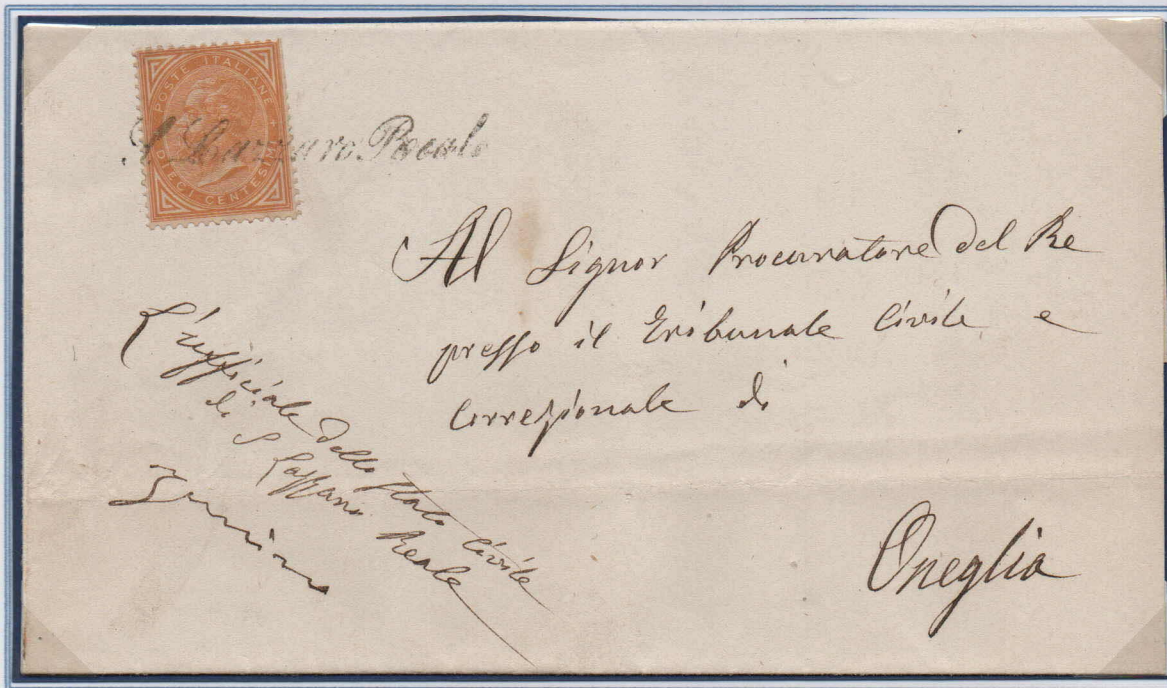 POSTE ITALIANE
DIECI CENTESIMI
S. Lazzaro Reale
Al Signor Procuratore del Re
presso il Tribunale Civile e
Correzionale di
Oneglia
L'uffiziale dello Stato Civile
di S Lazzaro Reale